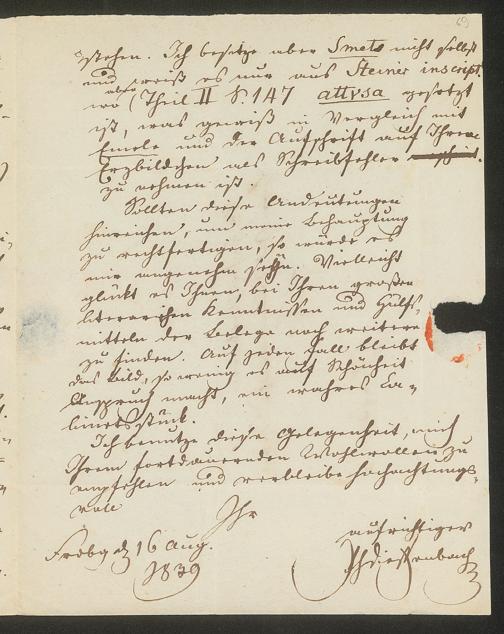 69
stehen. Ich besitze aber Smets nicht selbst
und weiß es nur aus Steiner inscript.
wo aber (Theil II S. 147 attvsa gesetzt
ist, was gewiß in Vergleich mit
Emele und der Aufschrift auf Ihrem
Erzbildchen als Schreibfehler
zu nehmen ist.
Sollten diese Andeutungen
hinreichen, um meine Behauptung
zu rechtfertigen, so würde es
mir angenehm seyn. Vielleicht
glückt es Ihnen, bei Ihren großen
literarischen Kenntnissen und Hülfs-
mitteln der Belege noch weitere
zu finden. Auf jeden Fall bleibt
das Bild, so wenig es auf Schönheit
Anspruch macht, ein wahres Ca-
binetsstück.
Ich benutze diese Gelegenheit, mich
Ihrem fortdauernden Wohlwollen zu
empfehlen und verbleibe hochachtungs-
voll
Ihr
aufrichtiger
Frdbg d 16 Aug.
1839
Phdieffenbach